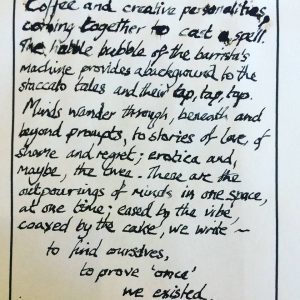 Coffee and creative personalities,
coming together to cast a spell.
The bubble of the barrista's
machine provides a background to the
staccato tales and their tap, tap, tap.
Minds wander through, beneath and
beyond prompts, to stories of love, of
shame and regret; erotica and,
maybe, the twee. These are the
outpourings of minds in one space,
at one time; eased by the vibe,
coaxed by the cake, we write ~
to find ourselves,
to prove 'once'
we existed.